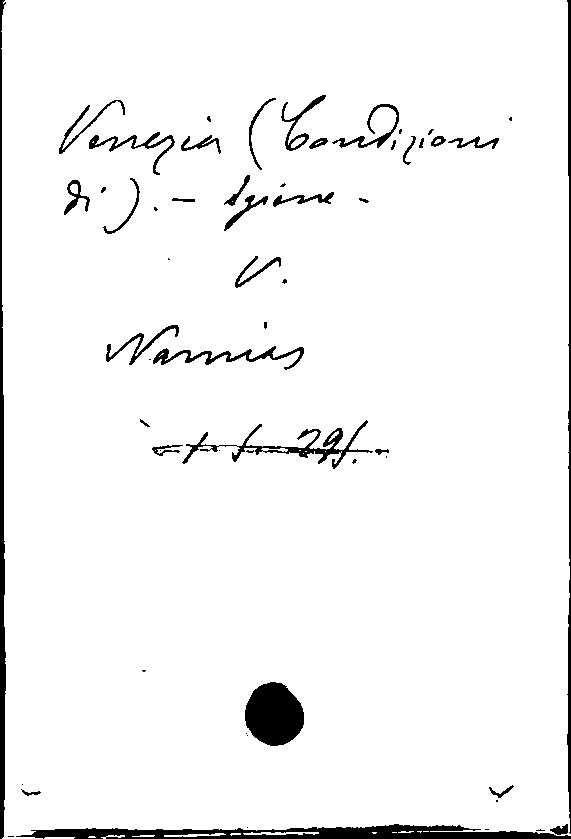 Venezia (Condizioni
di). - Igiene -
V.
Namias